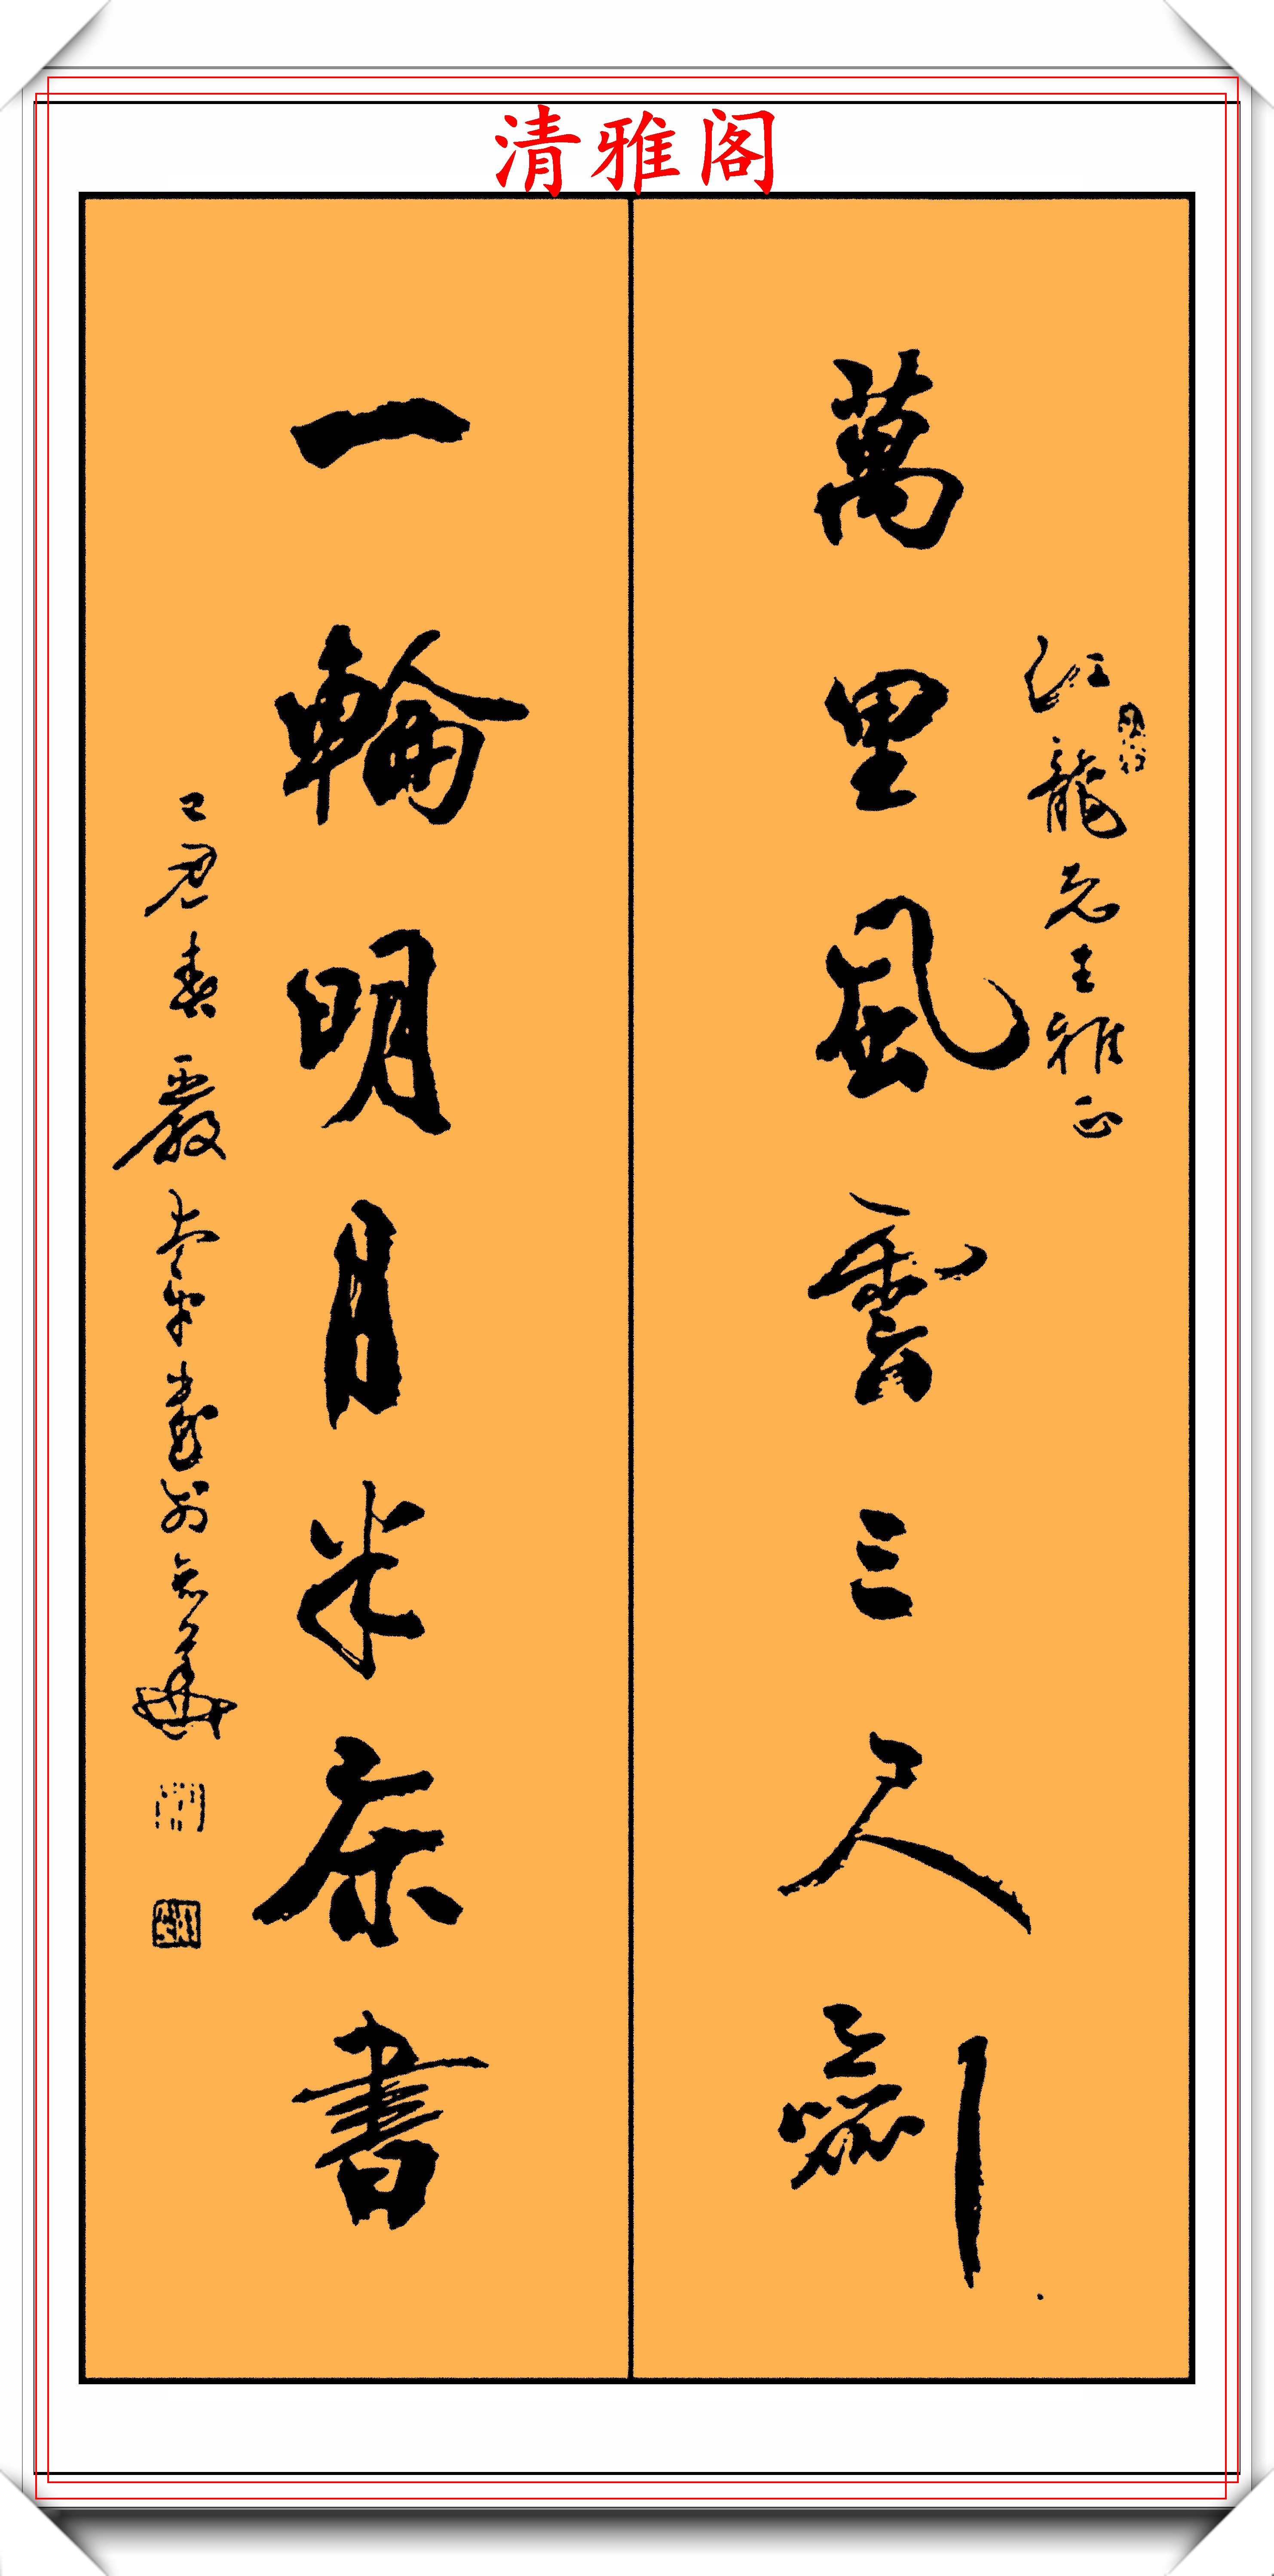 清雅阁
江龍先生雅正
萬里風雲三尺劍
一輪明月半床書
春嚴太平書於